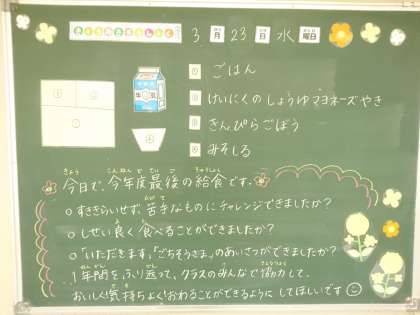 きょうのきゅうしょく 3月23日水曜日
① ごはん
② けいにくのしょうゆマヨネーズやき
③ きんぴらごぼう
④ みそしる
今日で、今年度最後の給食です。
○ すききらいせず、苦手なものにチャレンジできましたか?
○ しせい良く食べることができましたか?
○「いただきます」「ごちそうさま」のあいさつができましたか?
1年間をふり返って、クラスのみんなで協力して、
おいしく!気持ちよく!おわることができるようにしてほしいです